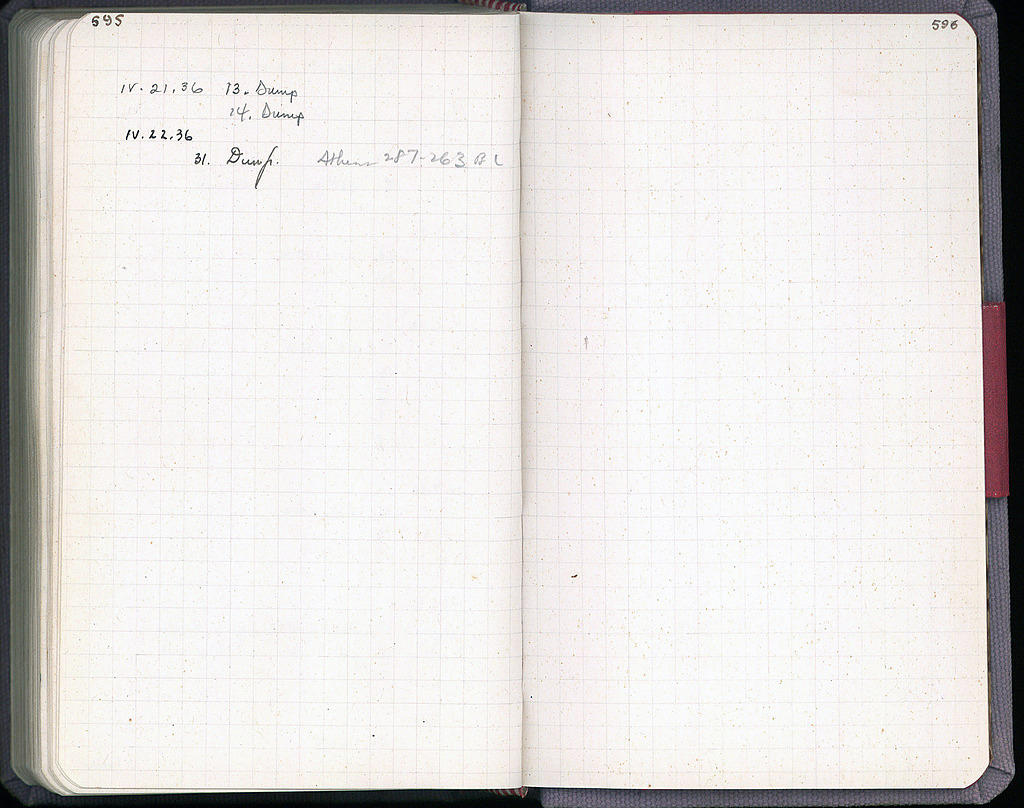 595
IV. 21. 36 13. Dump
14. Dump
IV. 22. 36
31. Dump. Athens 287-263 BC
596